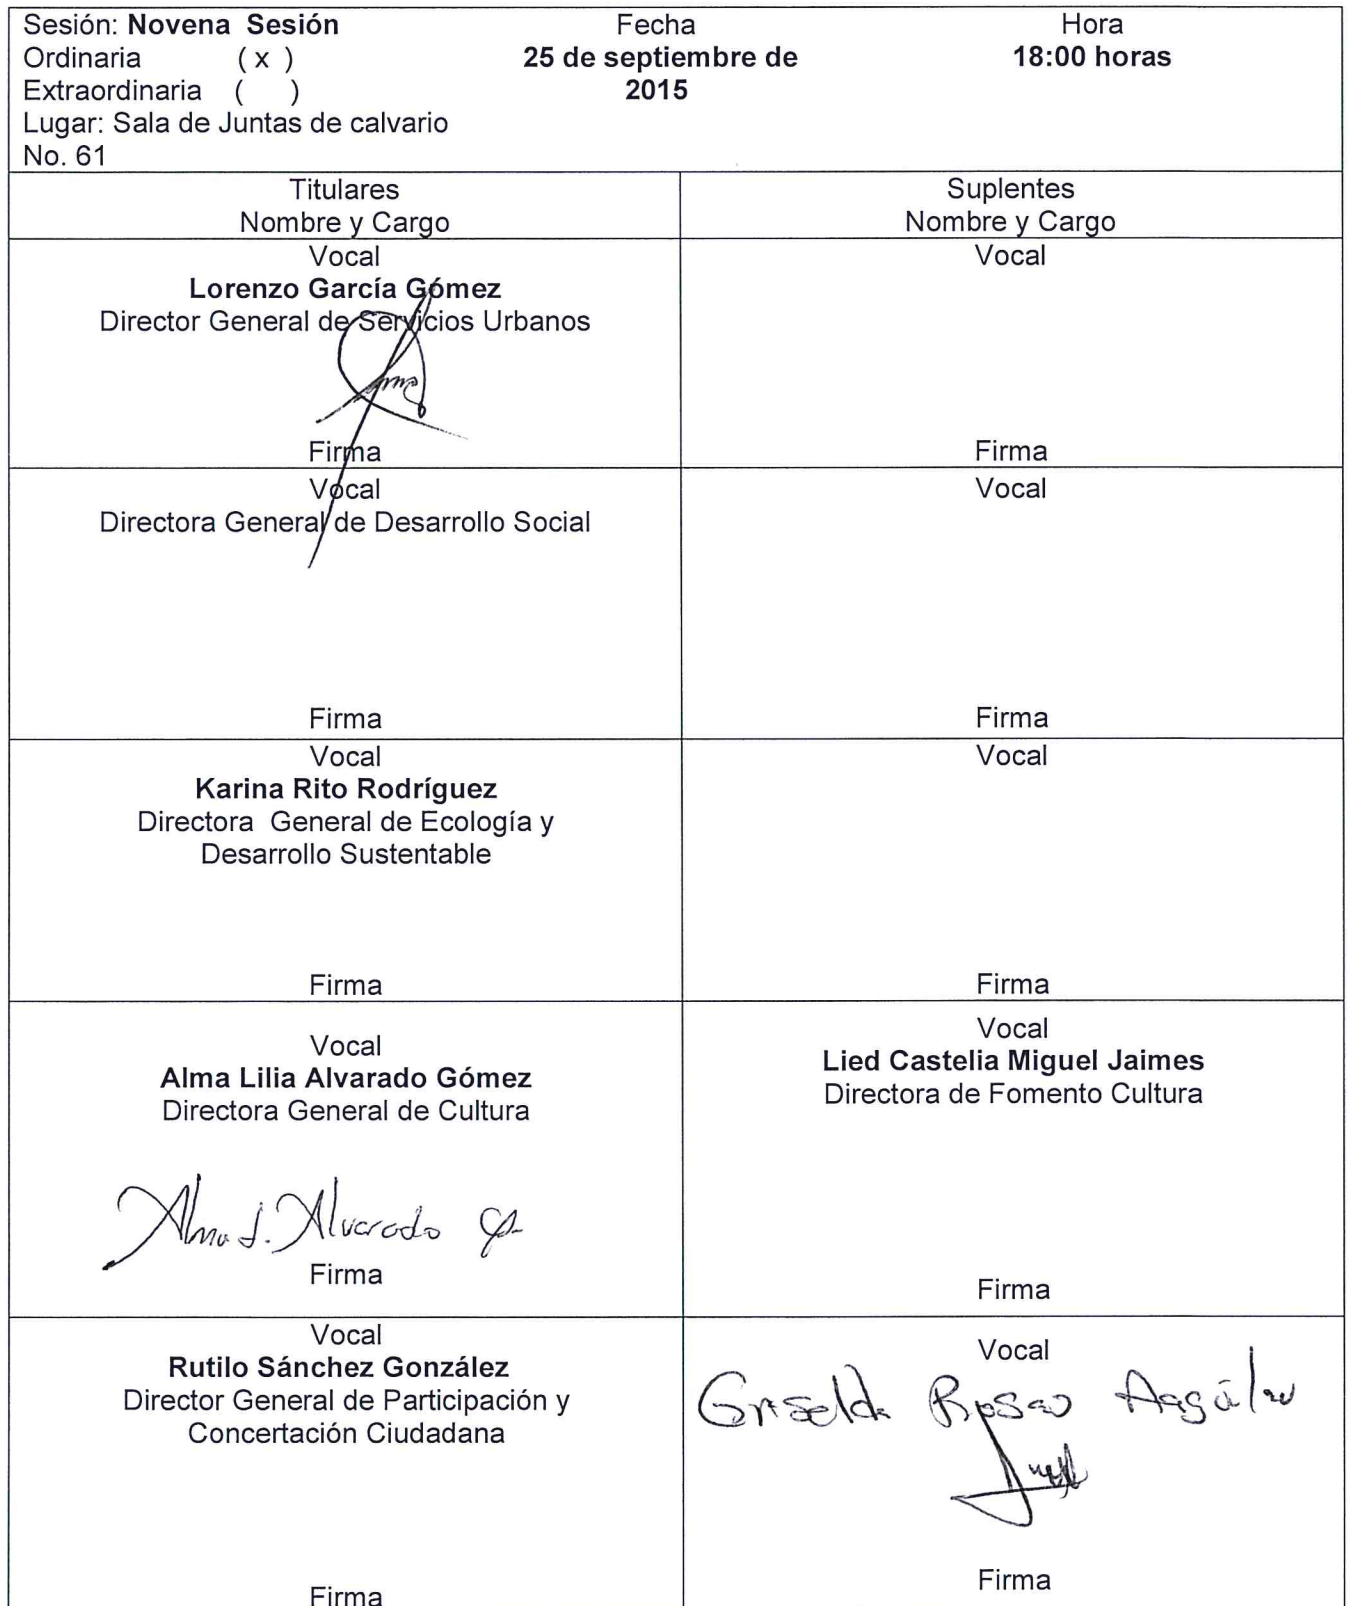 Sesión: Novena Sesión
Ordinaria ( x )
Extraordinaria ( )
Lugar: Sala de Juntas de calvario
No. 61
Fecha
25 de septiembre de
2015
Hora
18:00 horas
Titulares
Nombre y Cargo
Suplentes
Nombre y Cargo
Vocal
Lorenzo García Gómez
Director General de Servicios Urbanos
Firma
Vocal
Firma
Vocal
Directora General de Desarrollo Social
Firma
Vocal
Firma
Vocal
Karina Rito Rodríguez
Directora General de Ecología y
Desarrollo Sustentable
Firma
Vocal
Firma
Vocal
Alma Lilia Alvarado Gómez
Directora General de Cultura
Alma L. Alvarado
Firma
Vocal
Lied Castelia Miguel Jaimes
Directora de Fomento Cultura
Firma
Vocal
Rutilo Sánchez González
Director General de Participación y
Concertación Ciudadana
Firma
Vocal
Griselda Rosas
Firma